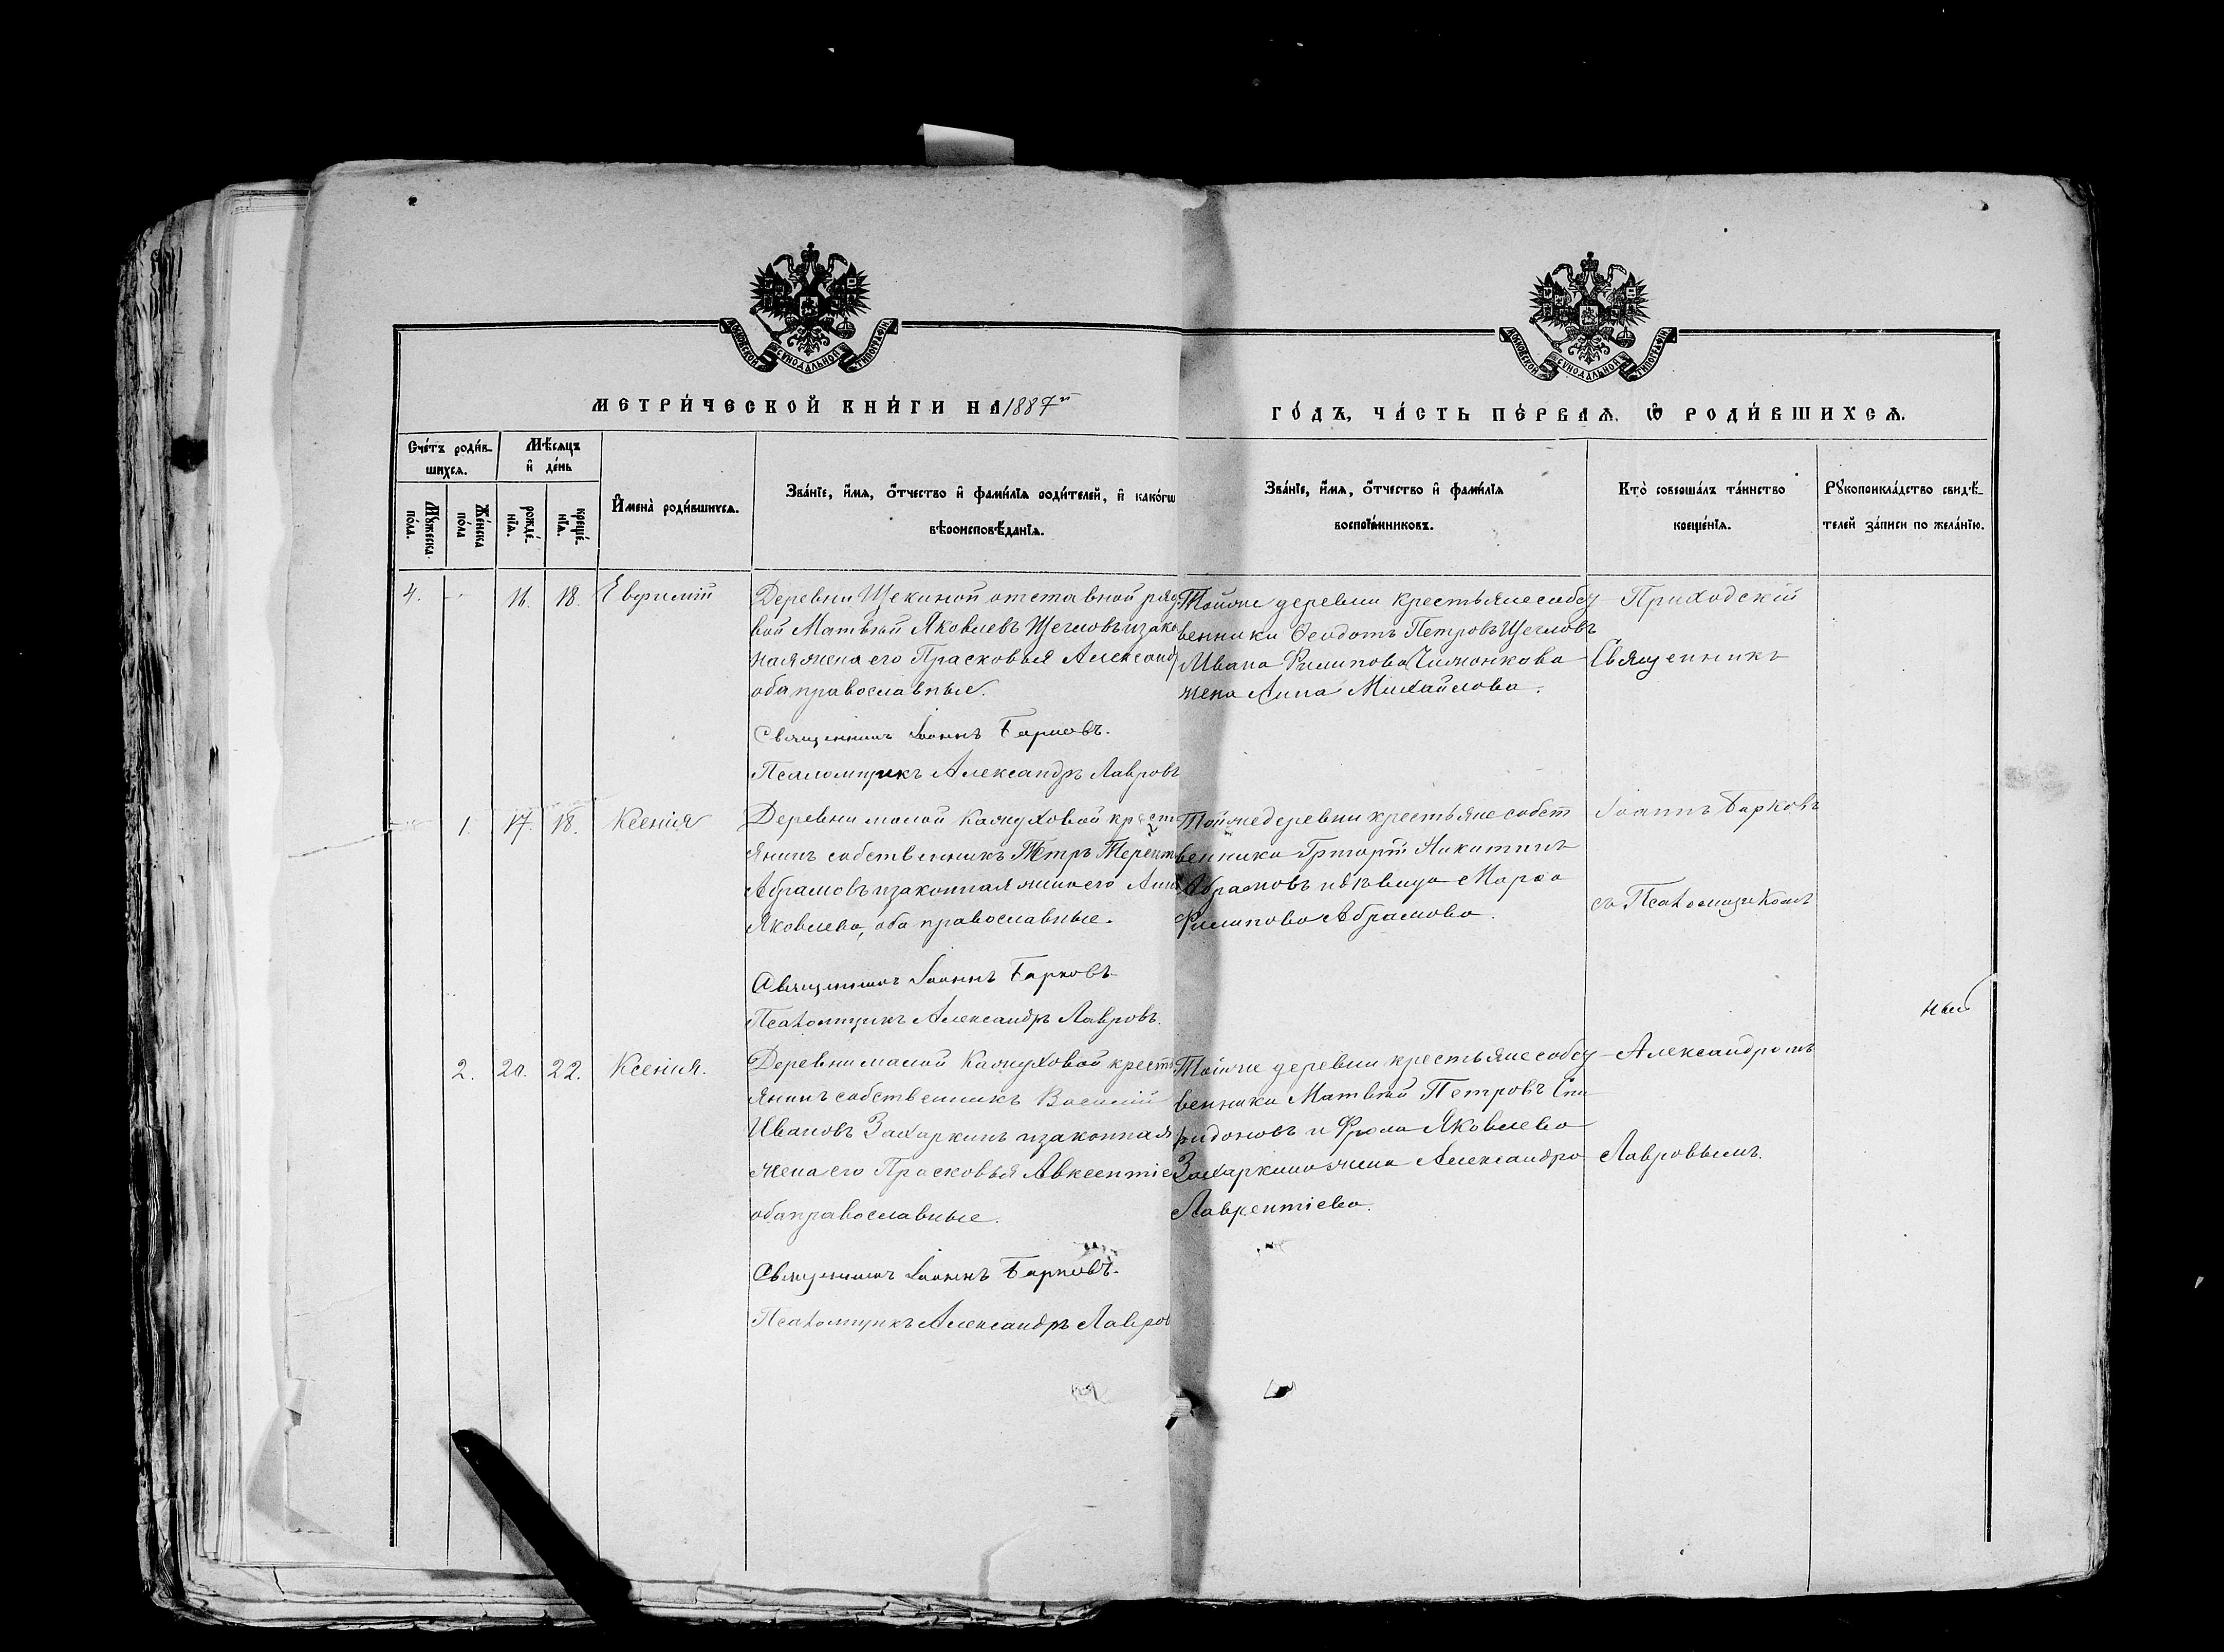 МОСКОВСКОЙ СѴНОДАЛЬНОЙ ТИПОГРАФІИ
МОСКОВСКОЙ СѴНОДАЛЬНОЙ ТИПОГРАФІИ
МЕТРИ́ЧЕСКОЙ КНИ́ГИ НА 1887й
ГО́ДЪ, ЧА́СТЬ ПЕ́РВАѦ, Ѡ҆ РОДИ́ВШИХСѦ.
Сче́тъ роди́в-
шихсѧ.
Мѣ́сяцъ
и҆ де́нь
Мꙋ́жеска
по́ла.
Же́нска
по́ла
рожде́-
нїѧ.
креще́-
нїѧ.
И҆мена̀ роди́вшихсѧ.
Зва́нїе, и҆́мѧ, ѻ҆́тчество и҆ фами́лїѧ роди́телей, и҆ како́гѡ
вѣроисповѣ́данїѧ.
Зва́нїе, и҆́мѧ, ѻ҆́тчество и҆ фами́лїѧ
воспрїе́мниковъ.
Кто̀ соверша́лъ та́инство
креще́нїѧ.
Рꙋкоприкла́дство свидѣ́-
телей за́писи по жела́нїю.
4. - 16. 18. Евфимій
Деревни Щекиной отставной рядо
вой Матвѣй Яковлевъ Щегловъ и зако
ная жена его Прасковья Александр
оба православные.
Священникъ Іоаннъ Барковъ.
Псаломщикъ Александръ Лавровъ
Тойже деревни крестьяне собст
венники Ѳеодотъ Петровъ Щегловъ
Ивана Филипова жена Анна Михайлова.
Приходскій
Священникъ
1. 17. 18. Ксенія
Деревни малой Кожуховой крест
янинъ собственникъ Петръ Терент
Абрамовъ и законная жена его Анна
Яковлева, оба православные.
Священникъ Іоаннъ Барковъ.
Псаломщикъ Александръ Лавровъ.
Тойже деревни крестьяне собст
венники Григорій Никитинъ
Абрамовъ и дѣвица Марѳа
Филипова Абрамова.
Іоаннъ Барковъ
съ Псаломщикомъ
2. 20. 22. Ксенія.
Деревни малой Кожуховой крестъ
янинъ собственникъ Василій
Ивановъ Захаркинъ и законная
жена его Прасковья Авксентіе
оба православные.
Священникъ Іоаннъ Барковъ.
Псаломщикъ Александръ Лавров
Тойже деревни крестьяне собст
венники Матвѣй Петровъ Спи
ридоновъ и Фрола Яковлева
Захаркина жена Александра
Лаврентіева.
Александромъ
Лавровымъ.